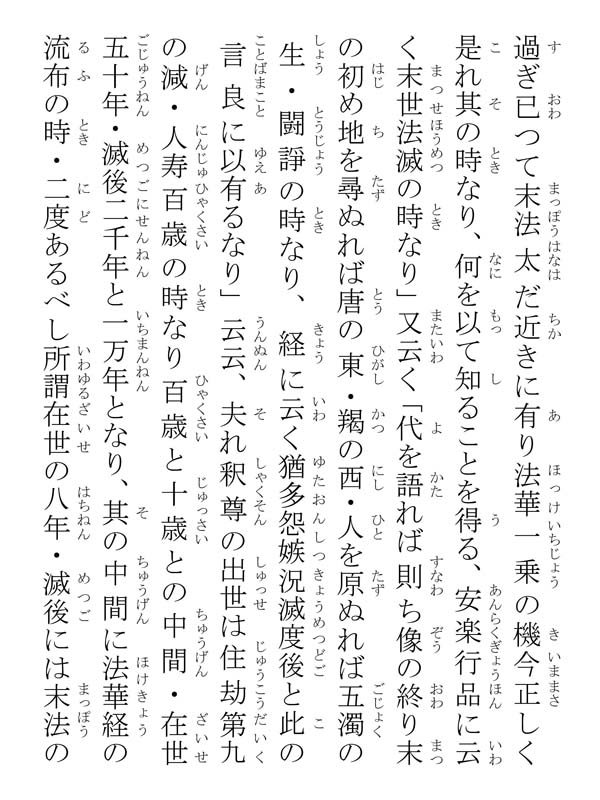 過ぎ已つて末法太だ近きに有り法華一乗の機今正しく
是れ其の時なり、何を以て知ることを得る、安楽行品に云
く末世法滅の時なり」又云く「代を語れば則ち像の終り末
の初め地を尋ぬれば唐の東・羯の西・人を原ぬれば五濁の
生・闘諍の時なり、経に云く猶多怨嫉況滅度後と此の
言良に以有るなり」云云、夫れ釈尊の出世は住劫第九
の減・人寿百歳の時なり百歳と十歳との中間・在世
五十年・滅後二千年と一万年となり、其の中間に法華経の
流布の時・二度あるべし所謂在世の八年・滅後には末法の